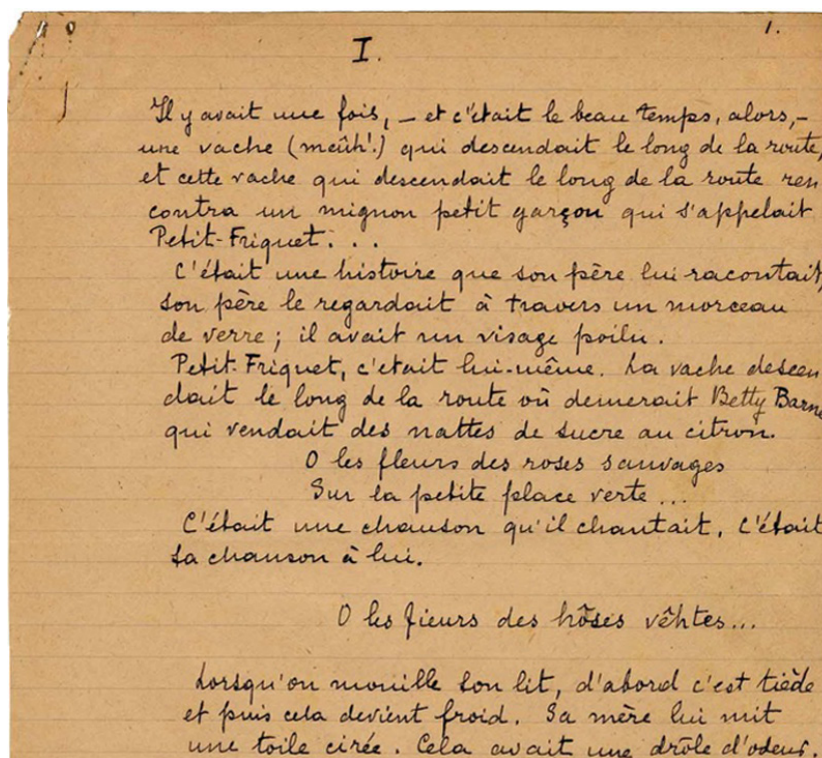 1.
I.
Il y avait une fois, – et c'était le beau temps, alors, –
une vache (meûh!) qui descendait le long de la route,
et cette vache qui descendait le long de la route ren
contra un mignon petit garçon qui s'appelait
Petit-Friquet...
C'était une histoire que son père lui racontait,
son père le regardait à travers un morceau
de verre ; il avait un visage poilu.
Petit-Friquet, c'était lui-même. La vache descen
dait le long de la route où demeurait Betty Barne
qui vendait des nattes de sucre au citron.
O les fleurs des roses sauvages
Sur la petite place verte...
C'était une chanson qu'il chantait. C'était
sa chanson à lui.
O les fieurs des hôses vêhtes...
Lorsqu'on mouille son lit, d'abord c'est tiède
et puis cela devient froid. Sa mère lui mit
une toile cirée. Cela avait une drôle d'odeur.